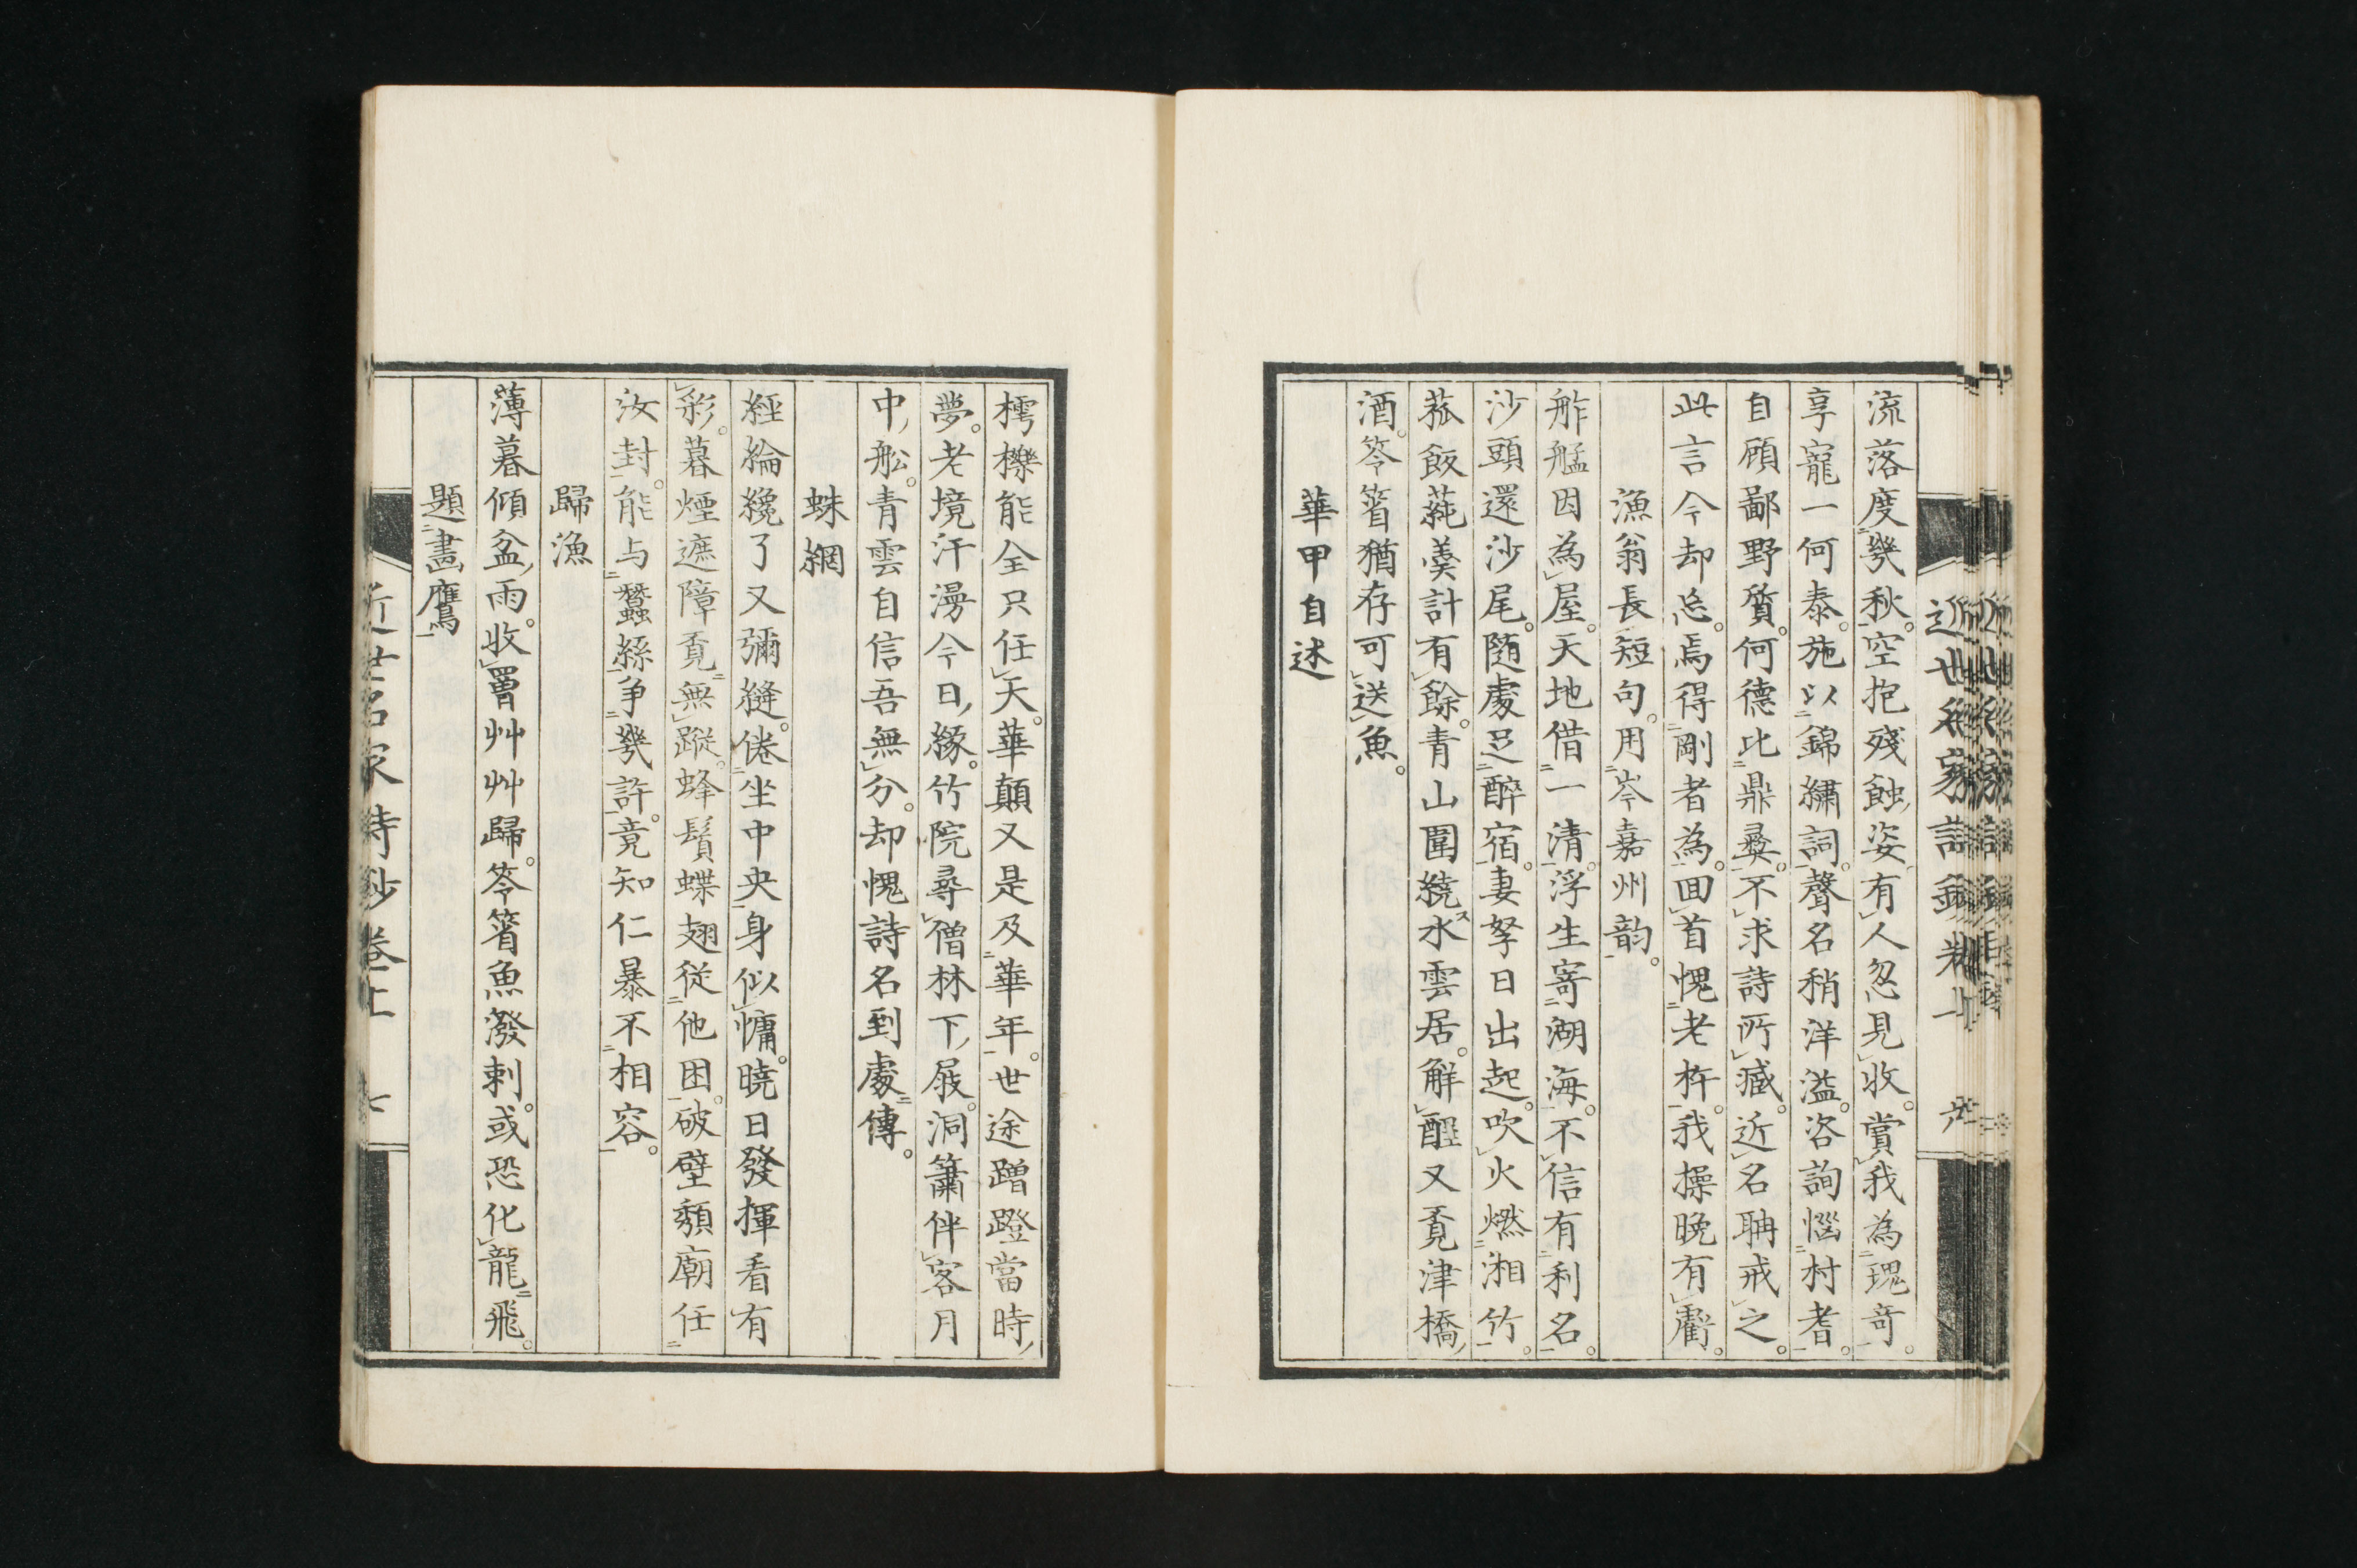 流落度幾秋。空抱殘蝕姿。有人忽見收。賞我為瑰奇。
享寵一何泰。施以錦繡詞。聲名稍洋溢。咨詢惱村耆。
自顧鄙野質。何德比鼎彝。不求詩所臧。近名聃戒之。
此言今却忘。焉得剛者為。回首愧老杵。我操晚有虧。
漁翁長短句。用岑嘉州韵。
舴艋因為屋。天地借一清。浮生寄湖海。不信有利名。
沙頭還沙尾。隨處足醉宿。妻孥日出起。吹火燃湘竹。
菰飯蓴羹計有餘。青山圍繞水雲居。解醒又覓津橋
酒。笭箵猶存可送魚。
華甲自述
樗櫟能全只任天。華顛又是及華年。世途蹭蹬當時
夢。老境汗漫今日緣。竹院尋僧林下屐。洞簫伴客月
中舩。青雲自信吾無分。却愧詩名到處傳。
蛛網
經綸纔了又彌縫。倦坐中央身似慵。曉日發揮看有
彩。暮煙遮障覓無蹤。蜂鬚蝶翅從他困。破壁頽廟任
汝封。能与蠶絲争幾許。竟知仁暴不相容。
歸漁
薄暮傾盆雨。收罾艸艸歸。笭箵魚潑剌。或恐化龍飛。
題畫鷹
近世名家詩鈔卷上 七